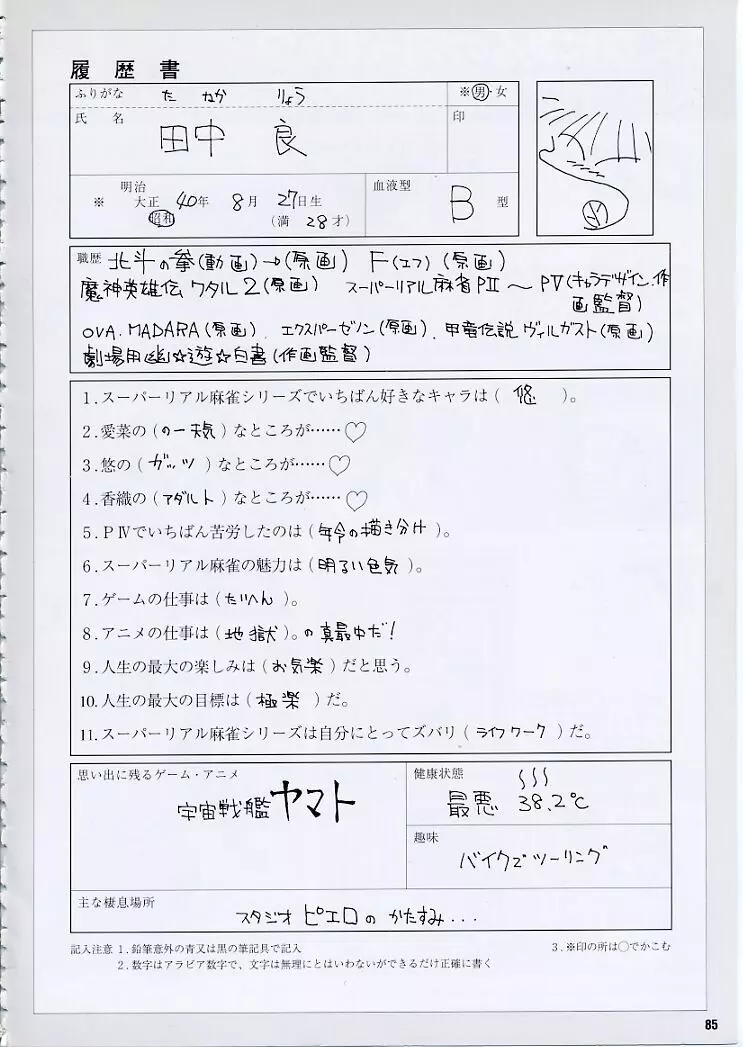 履歴書
ふりがな たなか りょう ※男・女
氏名 田中 良 印
※ 明治 大正 昭和 40年 8月 27日生 (満 28才)
血液型 B 型
職歴 北斗の拳(動画)→(原画) F(エフ)(原画)
魔神英雄伝 ワタル2(原画) スーパーリアル麻雀PII〜PV(キャラデザイン.作
画監督)
OVA.MADARA(原画). エクスパーゼノン(原画). 甲竜伝説 ヴィルガスト(原画)
劇場用幽☆遊☆白書(作画監督)
1.スーパーリアル麻雀シリーズでいちばん好きなキャラは( 悠 )。
2.愛菜の(のー天気)なところが……♡
3.悠の(ガッツ)なところが……♡
4.香織の(アダルト)なところが……♡
5.PⅣでいちばん苦労したのは(年令の描き分け)。
6.スーパーリアル麻雀の魅力は(明るい色気)。
7.ゲームの仕事は(たいへん)。
8.アニメの仕事は(地獄)。の真最中だ!
9.人生の最大の楽しみは(お気楽)だと思う。
10.人生の最大の目標は(極楽)だ。
11.スーパーリアル麻雀シリーズは自分にとってズバリ(ライフワーク)だ。
思い出に残るゲーム・アニメ
宇宙戦艦ヤマト
健康状態
最悪 38.2℃
趣味
バイクでツーリング
主な棲息場所
スタジオ ピエロの かたすみ...
記入注意 1.鉛筆意外の青又は黒の筆記具で記入 3.※印の所は○でかこむ
2.数字はアラビア数字で、文字は無理にとはいわないができるだけ正確に書く
85